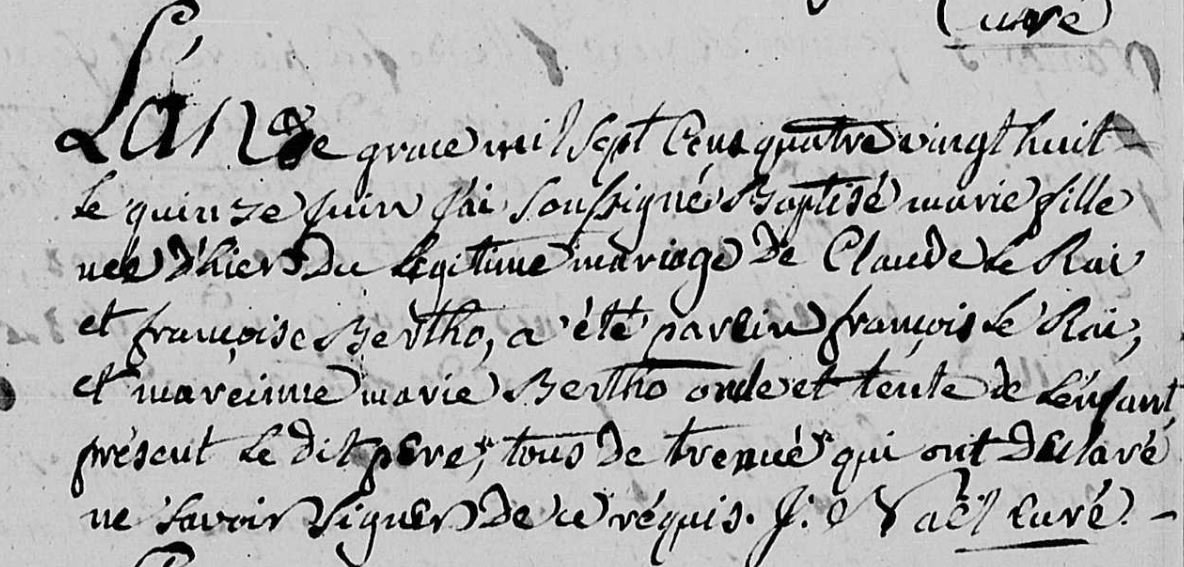 Curé
L'an de grace mil sept cens quatre vingt huit
le quinze juin j'ai soussigné Baptisé marie fille
neé d'hier du légitime mariage de Claude le Rai
et françoise Bertho, a été parein françois le Rai,
et mareinne marie Bertho oncle et tente de l'enfant,
présent le dit pere, tous de trevué qui ont declaré
ne savoir signer de ce réquis. J. Noël curé. -